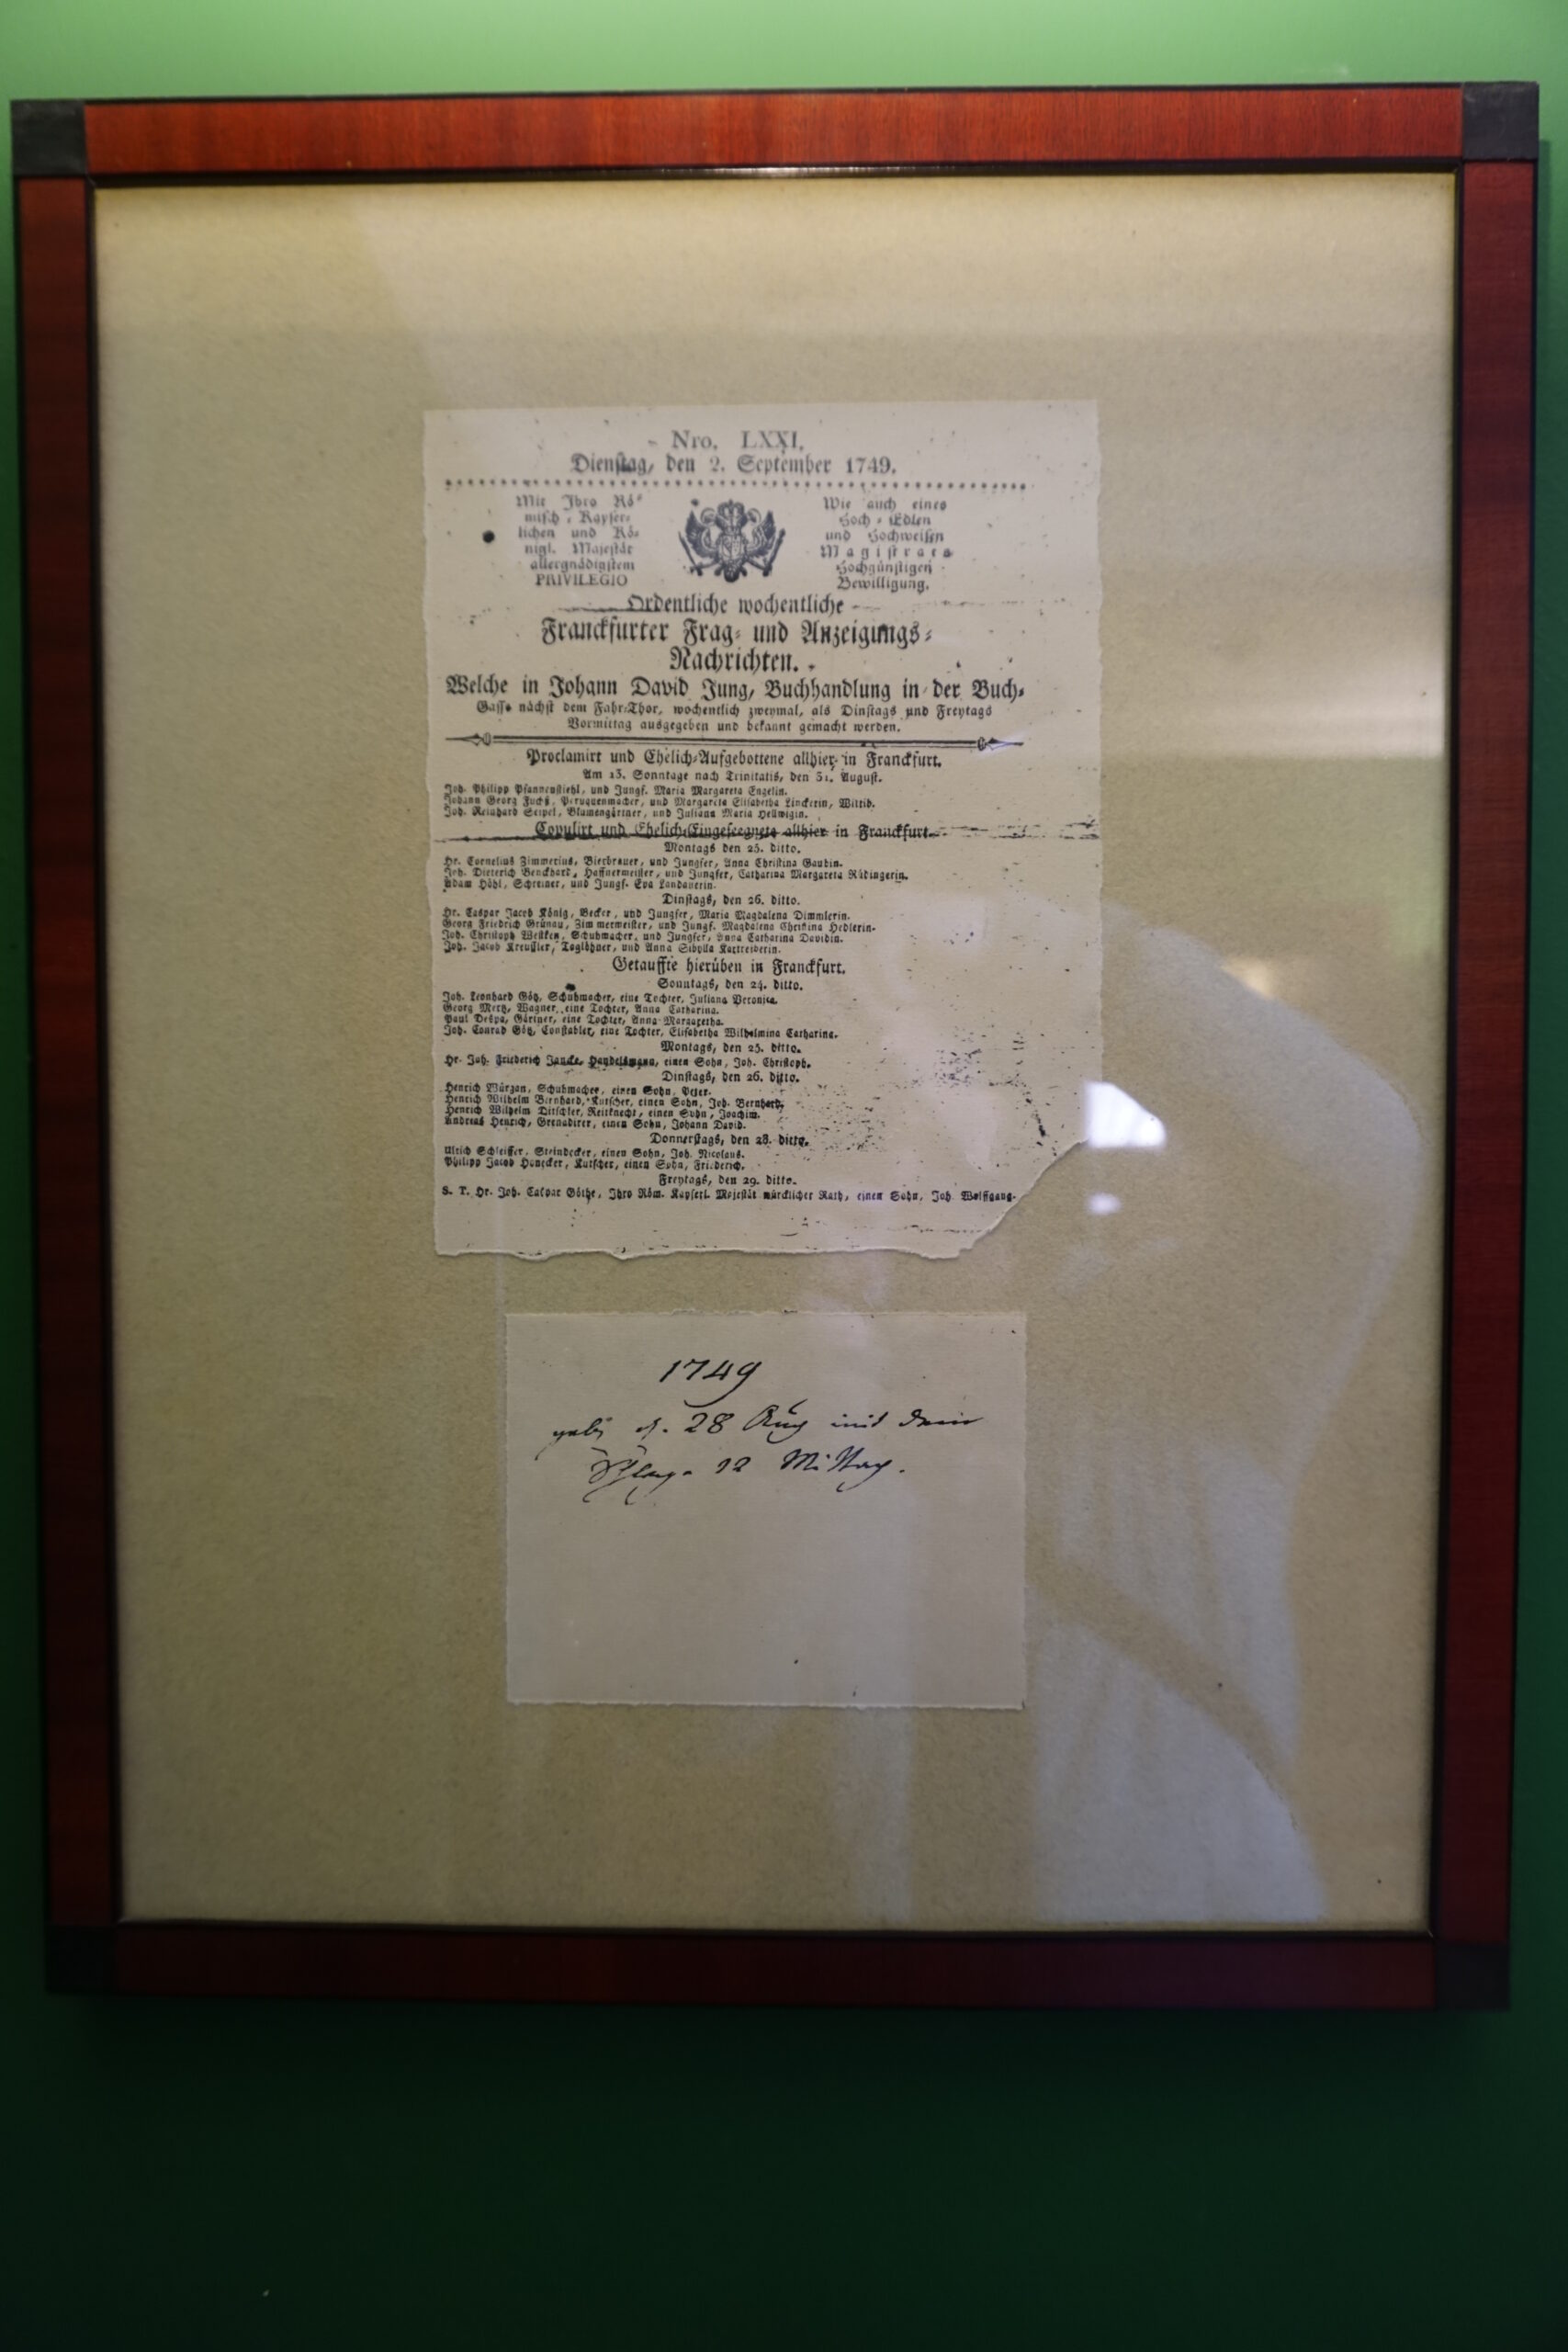 Nro. LXXI.
Dienstag, den 2. September 1749.
Mit Ihro Rö-
misch-Kayser-
lichen und Kö-
nigl. Majestät
allergnädigstem
PRIVILEGIO
Wie auch eines
Hoch-Edlen
und Hochweisen
Magistrats
Hochgünstigen
Bewilligung.
Ordentliche wochentliche
Franckfurter Frag- und Anzeigungs-
Nachrichten.
Welche in Johann David Jung, Buchhandlung in der Buch-
Gasse nächst dem Fahr-Thor, wochentlich zweymal, als Dinstags und Freytags
Vormittag ausgegeben und bekannt gemacht werden.
Proclamirt und Ehelich-Aufgebottene allhier in Franckfurt.
Am 13. Sonntage nach Trinitatis, den 31. August.
Joh. Philipp Pfannenstiehl, und Jungf. Maria Margareta Engelin.
Johann Georg Fuchß, Peruquenmacher, und Margareta Elisabetha Linckerin, Wittib.
Joh. Reinhard Seipel, Blumengärtner, und Juliana Maria Hellwigin.
Copulirt und Ehelich-Eingeseegnete allhier in Franckfurt.
Montags den 25. ditto.
Hr. Cornelius Zimmerius, Bierbrauer, und Jungfer, Anna Christina Gaubin.
Joh. Dieterich Benckhard, Haffnermeister, und Jungfer, Catharina Margareta Rüdingerin.
Adam Höhl, Schreiner, und Jungf. Eva Landauerin.
Dinstags, den 26. ditto.
Hr. Caspar Jacob König, Becker, und Jungfer, Maria Magdalena Dimmlerin.
Georg Friedrich Grünau, Zimmermeister, und Jungf. Magdalena Christina Hedlerin.
Joh. Christoph Westken, Schuhmacher, und Jungfer, Anna Catharina Davidin.
Joh. Jacob Kreußler, Taglöhner, und Anna Sibylla
Getauffte hierüben in Franckfurt.
Sonntags, den 24. ditto.
Joh. Leonhard Götz, Schuhmacher, eine Tochter, Juliana Veronica.
Georg Mertz, Wagner, eine Tochter, Anna Catharina.
Paul Despa, Gärtner, eine Tochter, Anna Margaretha.
Joh. Conrad Götz, Constabler, eine Tochter, Elisabetha Wilhelmina Catharina.
Montags, den 25. ditto.
Hr. Joh. Friederich Jancke, Handelsmann, einen Sohn, Joh. Christoph.
Dinstags, den 26. ditto.
Henrich Würzan, Schuhmacher, einen Sohn, Peter.
Henrich Wilhelm Bernhard, Kutscher, einen Sohn, Joh. Bernhard.
Henrich Wilhelm Ditschler, Reitknecht, einen Sohn, Joachim.
Andreas Henrich, Grenadirer, einen Sohn, Johann David.
Donnerstags, den 28. ditto.
Ulrich Schleiffer, Steindecker, einen Sohn, Joh. Nicolaus.
Philipp Jacob Honecker, Kutscher, einen Sohn, Friederich.
Freytags, den 29. ditto.
S. T. Hr. Joh. Caspar Göthe, Ihro Röm. Kayserl. Majestät würcklicher Rath, einen Sohn, Joh. Wolffgang.
1749
d. 28 Aug mit dem
12 Mittag.